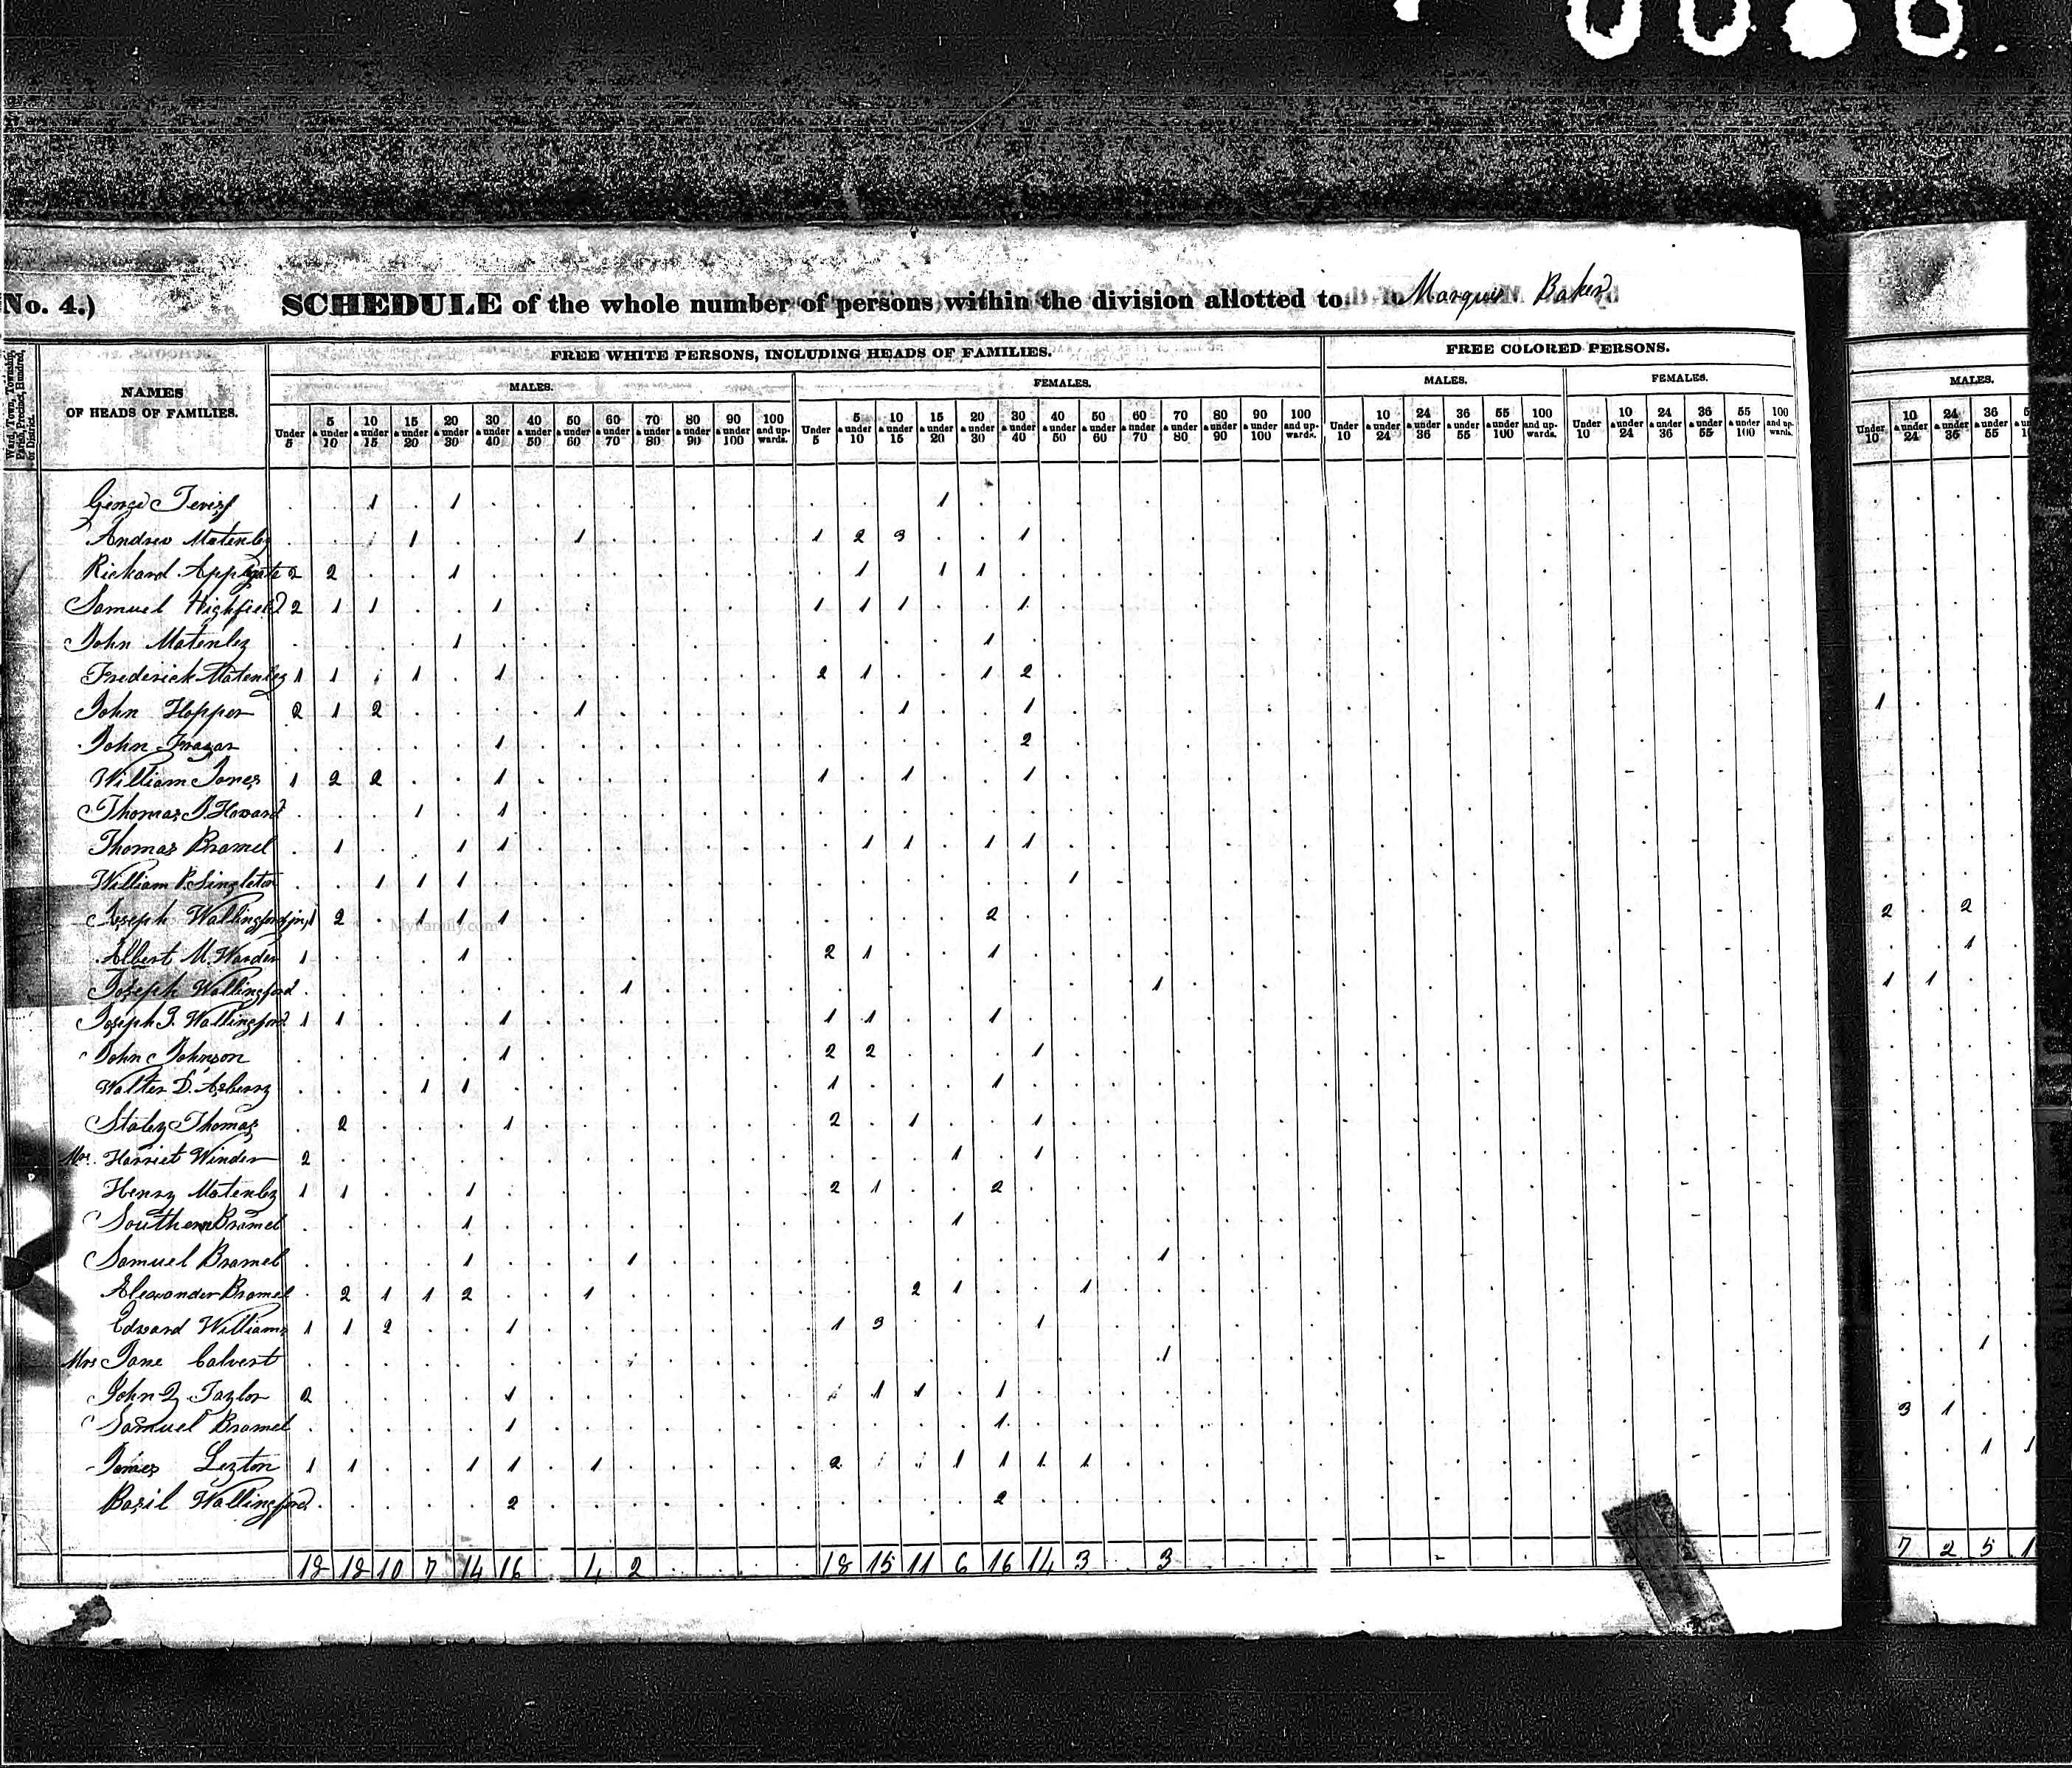 No. 4.)
SCHEDULE of the whole number of persons within the division allotted to Marquis Baker
Ward, Town, Township, Parish, Precinct, Hundred, or District.
NAMES OF HEADS OF FAMILIES.
FREE WHITE PERSONS, INCLUDING HEADS OF FAMILIES.
FREE COLORED PERSONS.
MALES. FEMALES. MALES. FEMALES. MALES.
Under 5 5 & under 10 10 & under 15 15 & under 20 20 & under 30 30 & under 40 40 & under 50 50 & under 60 60 & under 70 70 & under 80 80 & under 90 90 & under 100 100 and upwards. Under 5 5 & under 10 10 & under 15 15 & under 20 20 & under 30 30 & under 40 40 & under 50 50 & under 60 60 & under 70 70 & under 80 80 & under 90 90 & under 100 100 and upwards. Under 10 10 & under 24 24 & under 36 36 & under 55 55 & under 100 100 and upwards. Under 10 10 & under 24 24 & under 36 36 & under 55 55 & under 100 100 and upwards. Under 10 10 & under 24 24 & under 36 36 & under 55
George 1 1 1
Andrew Matenley 1 1 1 2 3 1
Richard Applegate 2 2 1 1 1 1
Samuel Highfield 2 1 1 1 1 1 1 1
John Matenley 1 1
Frederick Matenley 1 1 1 1 2 1 1 2
John Hopper 2 1 2 1 1 1 1
John Frazar 1 2
William Jones 1 2 2 1 1 1 1
Thomas Howard 1 1
Thomas Bramel 1 1 1 1 1 1 1
William P. Singleton 1 1 1 1
Joseph Wallingford jr. 1 2 1 1 1 2 2 2
Albert M. Warder 1 1 2 1 1 1
Joseph Wallingford 1 1 1 1
Joseph Wallingford 1 1 1 1 1 1
John Johnson 1 2 2 1
Walter D. Asberry 1 1 1 1
Staley Thomas 2 1 2 1 1
Mrs. Harriet Winder 2 1 1
Henry Matenley 1 1 1 2 1 2
Southern Bramel 1 1
Samuel Bramel 1 1 1
Alexander Bramel 2 1 1 2 1 2 1 1
Edward Williams 1 1 2 1 1 3 1
Mrs Jane Calvert 1 1
John Taylor 2 1 1 1 1
Samuel Bramel 1 1 3 1
James 1 1 1 1 1 2 1 1 1 1 1 1
Basil Wallingford 2 2
18 18 10 7 14 16 4 2 18 15 11 6 16 14 3 3 7 2 5 1
MyFamily.com